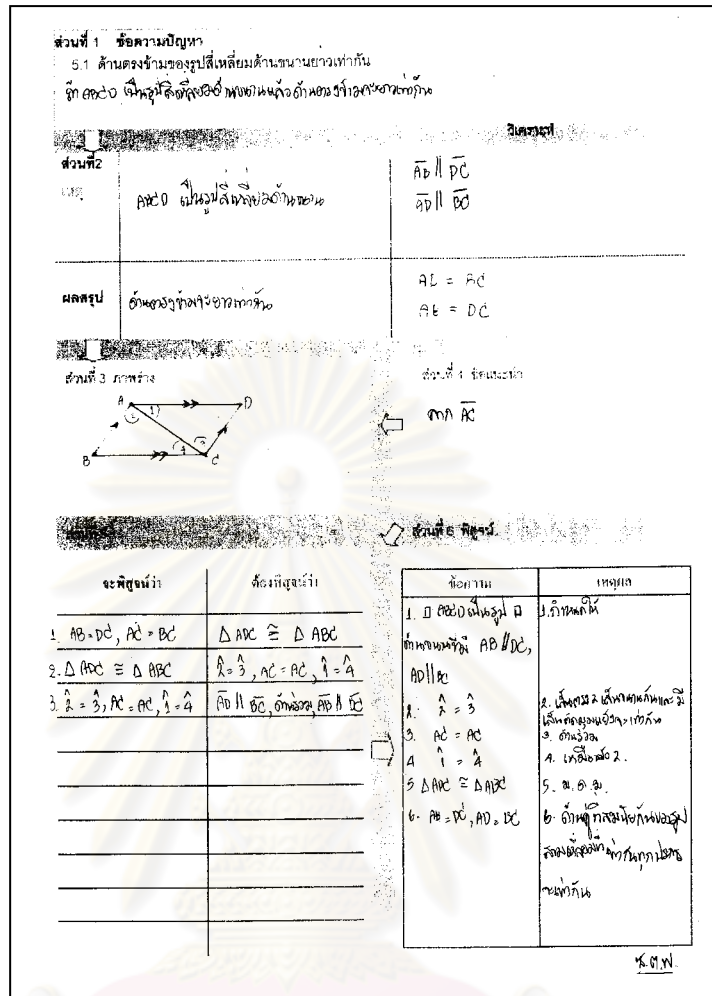 ส่วนที่ 1 ข้อความปัญหา
5.1 ด้านตรงข้ามของรูปสี่เหลี่ยมด้านขนานยาวเท่ากัน
ถ้า ABCD เป็นรูปสี่เหลี่ยมด้านขนานแล้วด้านตรงข้ามจะยาวเท่ากัน
วิเคราะห์
ส่วนที่2
เหตุ
ABCD เป็นรูปสี่เหลี่ยมด้านขนาน
AB // DC
AD // BC
ผลสรุป
ด้านตรงข้ามจะยาวเท่ากัน
AB = DC
ส่วนที่ 3 ภาพร่าง
ส่วนที่ 4 ข้อแนะนำ
ลาก AC
A
D
B
C
1
2
3
4
ส่วนที่ 6 พิสูจน์
จะพิสูจน์ว่า
ต้องพิสูจน์ว่า
1. AB = DC, AD = BC
Δ ADC ≅ Δ ABC
2. Δ ADC ≅ Δ ABC
2̂ = 3̂, AC = AC, 1̂ = 4̂
3. 2̂ = 3̂, AC = AC, 1̂ = 4̂
AD // BC, ด้านร่วม, AB // DC
ข้อความ
เหตุผล
1. □ ABCD เป็นรูป □
ด้านขนานที่มี AB // DC,
AD // BC
1. กำหนดให้
2. 2̂ = 3̂
2. เส้นตรง 2 เส้นขนานกันและมี
เส้นตัดมุมแย้งจะเท่ากัน
3. AC = AC
3. ด้านร่วม
4 1̂ = 4̂
4. เหมือนข้อ 2.
5 Δ ADC ≅ Δ ABC
5. ม.ด.ม.
6. AB = DC, AD = BC
6. ด้านคู่ที่สมนัยกันของรูป
สามเหลี่ยมที่เท่ากันทุกประการ
จะเท่ากัน
ซ.ต.พ.